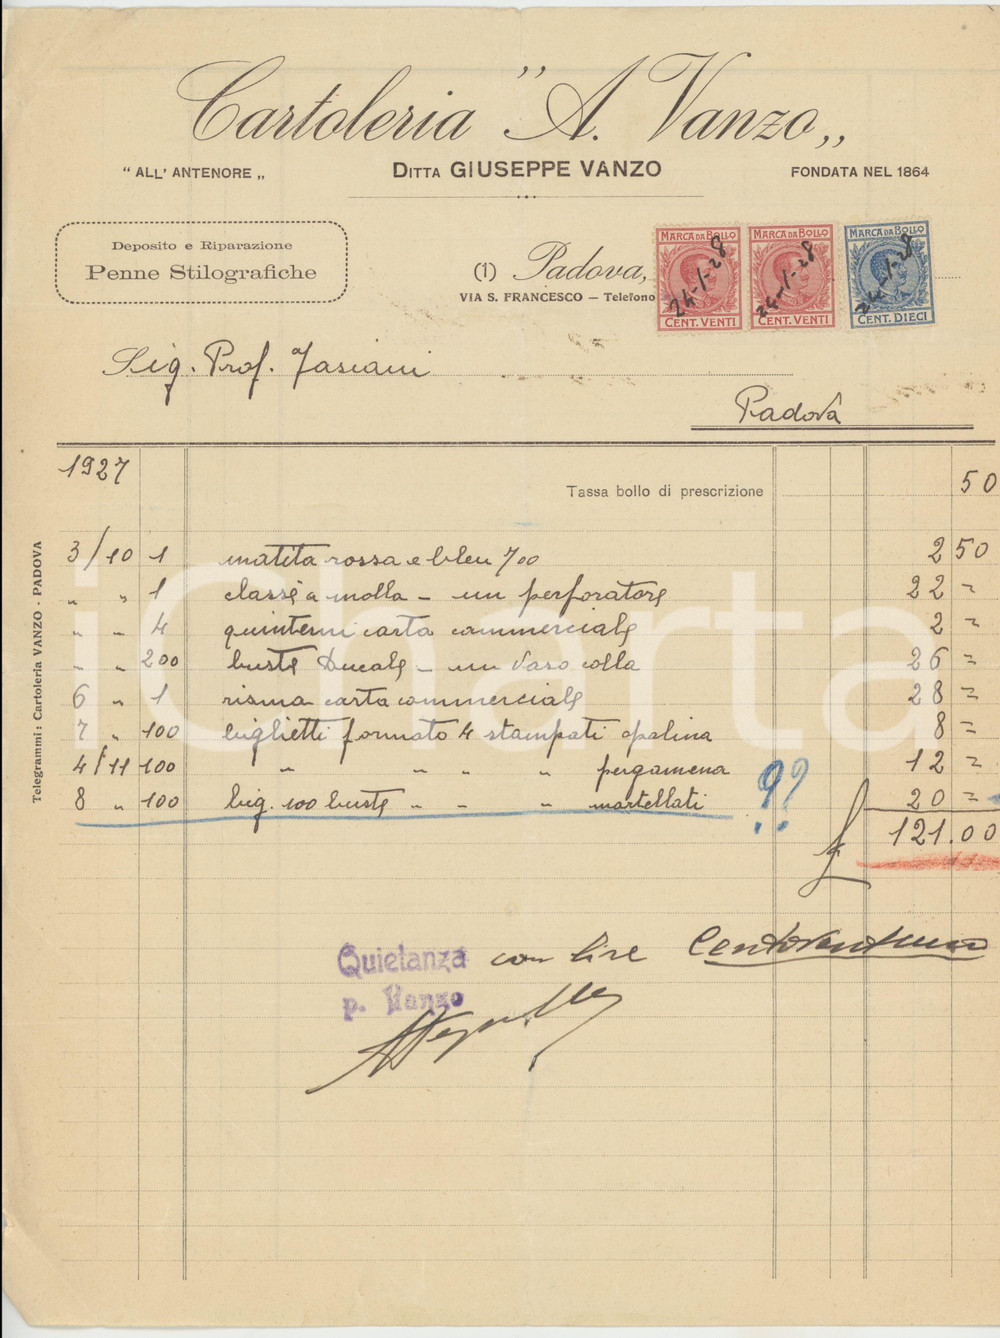 Cartoleria "A. Vanzo„
"ALL' ANTENORE„
DITTA GIUSEPPE VANZO
FONDATA NEL 1864
Deposito e Riparazione
Penne Stilografiche
(1) Padova,
VIA S. FRANCESCO — Telefono
MARCA DA BOLLO
24-1-28
CENT. VENTI
MARCA DA BOLLO
24-1-28
CENT. VENTI
MARCA DA BOLLO
24-1-28
CENT. DIECI
Sig. Prof. Fasiani
Padova
1927
Tassa bollo di prescrizione 50
3/10 1 matita rossa e bleu 700 2 50
" " 1 classe a molla - un perforatore 22 =
" " 4 quinterni carta commerciale 2 =
" " 200 buste Ducale - un vaso colla 26 =
6 " 1 risma carta commerciale 28 =
7 " 100 biglietti formato 4 stampati opalina 8 =
4/11 100 " " " " pergamena 12 =
8 " 100 big. 100 buste " " " martellati 20 =
??
£ 121.00
Quietanza con lire Centoventuno
p. Vanzo
Telegrammi: Cartoleria VANZO - PADOVA
iCharta